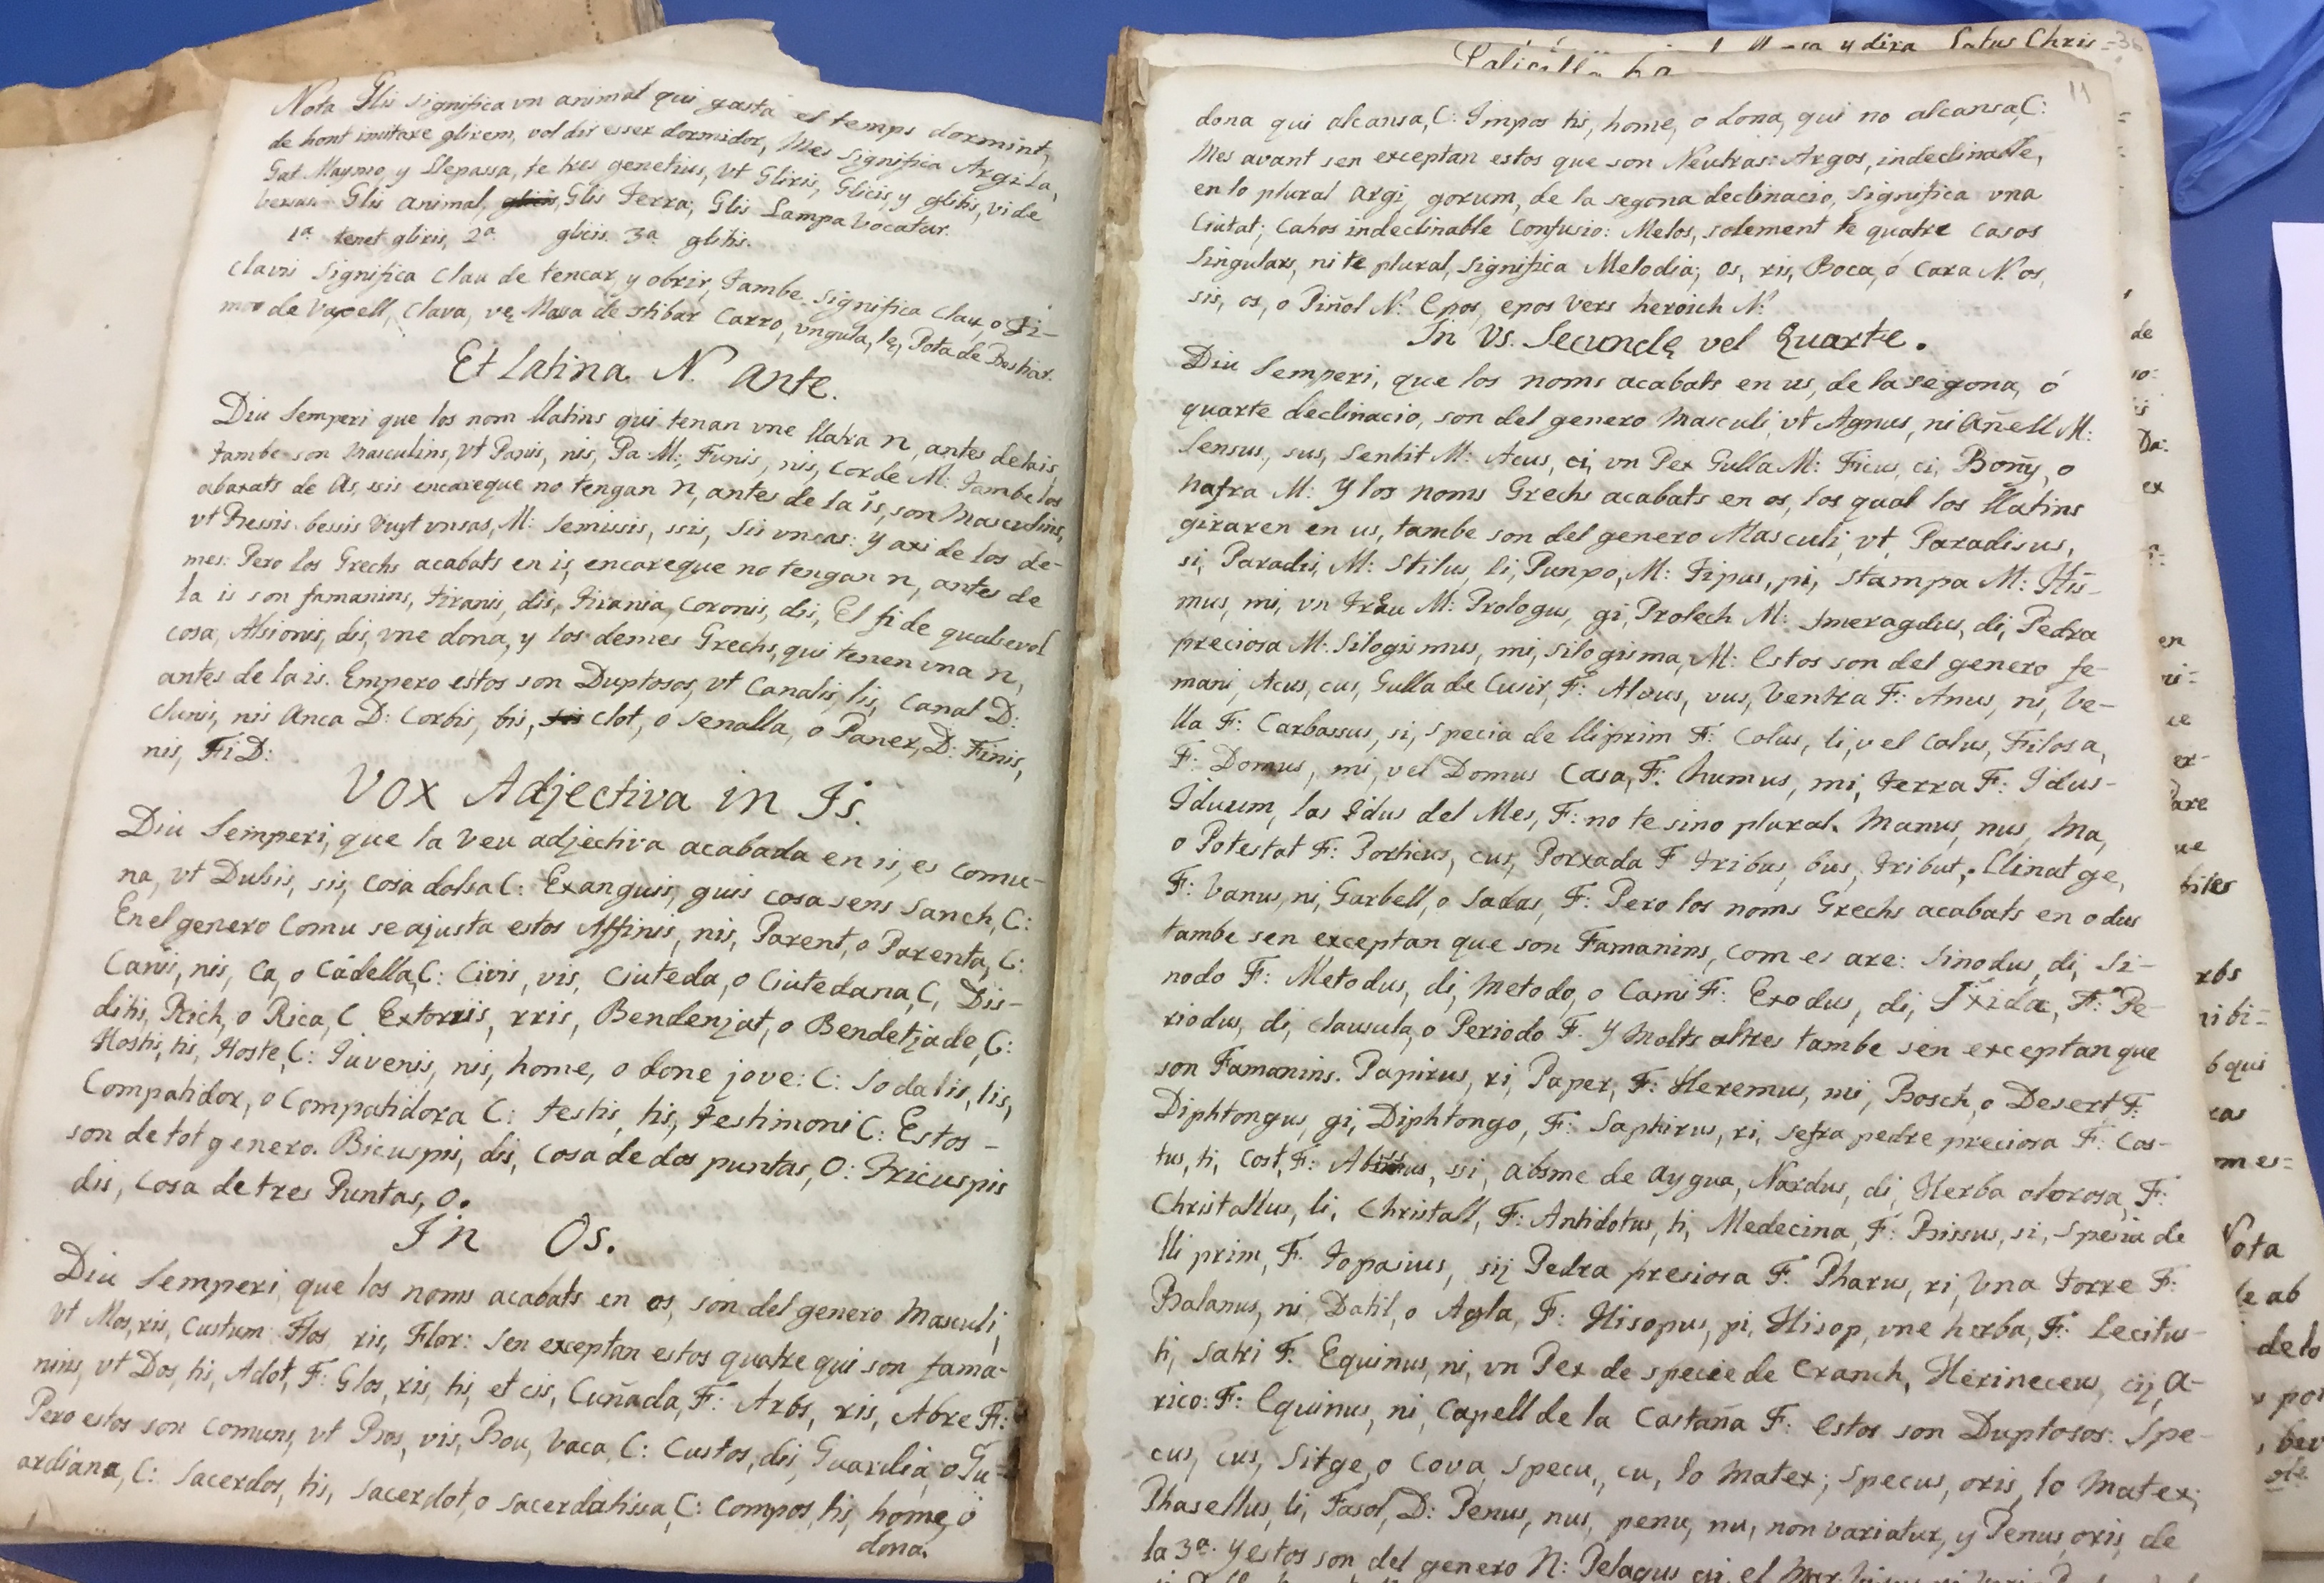 Nota Glis significa vn animal qui gasta el temps dormint,
de hont imitare glirem, vol dir esser dormidor, Mes significa Argila,
Gat Maymo, y Llepassa, te tres genetius, vt Gliris, Glicis, y glitis, vide
versus Glis animal, Glis Terra, Glis Lampa Vocatur.
1ª tenet gliris, 2ª glicis. 3ª glitis.
Clavis significa Clau de tencar, y obrir, tambe significa Clau, o Ti-
mor de Vaxell, Clava, vę Masa de stibar Carro, vngula, lę, Pota de Bestiar.
Et latina. N. ante.
Diu Semperi que los nom llatins qui tenan vne llatra n, antes de la is,
tambe son Masculins, vt Panis, nis, Pa M:, Funis, nis, Corde M: tambe los
abaxats de As, ssis encareque no tengan n, antes de la is, son Masculins,
vt Tressis. bessis Vuyt vnsas, M: Semissis, ssis, Sis vnsas: y axi de los de-
mes: Pero los Grechs acabats en is, encareque no tengan n, antes de
la is son famanins, tiranis, dis, Tirania, Coronis, dis, El fi de qualsevol
cosa, Alsionis, dis, vne dona, y los demes Grechs, qui tenen vna n,
antes de la is. Empero estos son Duptosos, vt Canalis, lis, Canal D:
Clunis, nis Anca D: Corbis, bis, Clot, o Senalla, o Paner, D: Finis,
nis, Fi D:
Vox Adjectiva in Is.
Diu Semperi, que la Veu adjectiva acabada en is, es Comu-
na, vt Dulsis, sis, cosa dolsa C: Exanguis, guis cosa sens Sanch, C:
En el genero Comu se ajusta estos Affinis, nis, Parent, o Parenta, C:
Canis, nis, Ca, o Cadella, C: Civis, vis, Ciuteda, o Ciutedana, C, Dis-
ditis, Rich, o Rica, C Extorris, rris, Bendenjat, o Bendetjade, C:
Hostis, tis, Hoste, C: Juvenis, nis, home, o done jove: C: Sodalis, lis,
Compatidor, o Compatidora C: testis, tis, testimoni C: Estos -
son de tot genero. Bicuspis, dis, cosa de dos puntas, O: Tricuspis
dis, Cosa de tres Puntas, O.
In Os.
Diu Semperi, que los noms acabats en os, son del genero Masculi,
vt Mos, ris, Custum Flos ris, Flor: Sen exceptan estos quatre qui son fama-
nins, vt Dos, tis, Adot, F: Glos, ris, tis, et cis, Cuñada, F: Arbs, ris, Abre F:
Pero estos son Comuns, vt Bos, vis, Bou, Vaca, C: Custos, dis, Guardia, o Gu-
ardiana, C: Sacerdos, tis, Sacerdot, o sacerdatissa, C: Compos, tis, home, o
dona.
11
dona qui alcansa, C: Impos tis, home, o dona, qui no alcansa, C:
Mes avant sen exceptan estos que son Neutras: Argos, indeclinable,
en lo plural Argi, gorum, de la segona declinacio, Significa vna
Ciutat; Cahos indeclinable Confusio: Melos, solement te quatre Casos
Singulars, ni te plural, significa Melodia; os, ris, Boca, ó Cara N. os,
sis, os, o Piñol N: Epos, epos Vers heroich N:
In Vs. Secundę vel Quarte.
Diu Semperi, que los noms acabats en us, de la segona, ó
quarte declinacio, son del genero Masculi, vt Agnus, ni Añell M:
Sensus, sus, Sentit M: Acus, ci, vn Pex Gulla M: Ficus, ci, Boñy, o
Nafra M: Y los noms Grechs acabats en os, los qual los llatins
giraren en us, tambe son del genero Masculi, vt, Paradisus,
si, Paradis, M: Stilus, li, Punpo, M: Tipus, pi, Stampa M: His-
mus, mi, vn trau M: Prologus, gi, Prolech M: Smeragdus, di, Pedra
preciosa M: Silogismus, mi, silogisma, M: Estos son del genero fe-
mani, Acus, cus, Gulla de Cusir, F: Alvus, vus, Ventra F: Anus, ni, Ve-
lla F: Carbassus, si, specia de lli prim F: Colus, li, vel Colus, Filosa,
F: Domus, mi, vel Domus Casa, F: humus, mi, terra F: Idus-
Iduum, las Idus del Mes, F: no te sino plural. Manus, nus, Ma,
o Potestat F: Porticus, cus, Porxada F tribus, bus, tribut, Llinatge,
F: Vanus, ni, Garbell, o Sadas, F: Pero los noms Grechs acabats en odus
tambe sen exceptan que son Famanins, com es are: Sinodus, di, Si-
nodo F: Metodus, di, Metodo, o Cami F: Exodus, di, Ixida, F: Pe-
riodus, di, Clausula, o Periodo F. Y Molts altres tambe sen exceptan que
son Famanins. Papirus, ri, Paper, F: Heremus, mi, Bosch, o Desert F:
Diphtongus, gi, Diphtongo, F: Saphirus, ri, sefra pedre preciosa F: Cos-
tus, ti, Cost, F: Abissus, ssi, absme de aygua, Nardus, di, Herba olorosa, F:
Christallus, li, Christall, F: Antidotus, ti, Medecina, F: Bissus, si, Spesia de
lli prim, F: topasius, sij Pedra presiosa F: Pharus, ri, Vna Torre F:
Balanus, ni, Datil, o Agla, F: Hisopus, pi, Hisop, vne herba, F: Lecitus-
ti, Satri F: Equinus, ni, vn Pex de specie de Cranch, Herineceus, cij, A-
rico: F: Equinus, ni, Capell de la Castaña F: estos son Duptosos: Spe-
cus, cus, Sitge, o Cova, Specu, cu, lo Matex; Specus, oris, lo Matex;
Phasellus, li, Fasol, D: Penus, nus, penu, nu, non variatur, y Penus, oris, de
la 3ª. y estos son del genero N: Pelagus gi, el Mar